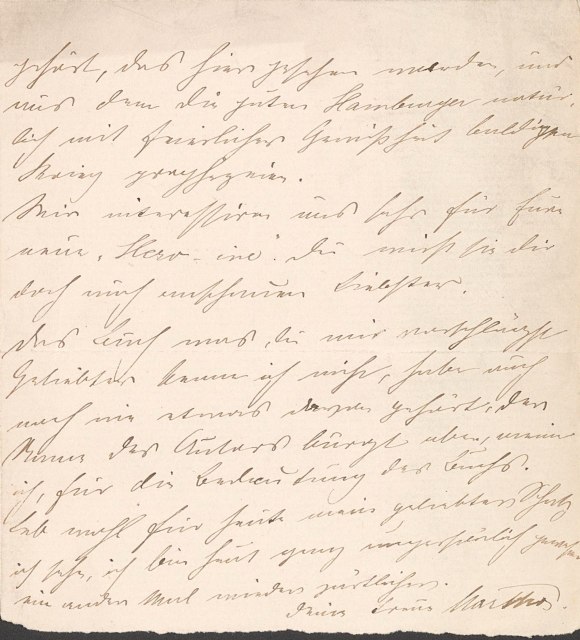 gehört, das hier gesehen worden, und
aus dem die guten Hamburger natür-
lich mit feierlicher Gewißheit baldigen
Krieg prophezeien.
Wir interessiren uns sehr für Eure
neue „Hero-ine". Du mußt sie dir
doch auch anschauen Liebster.
Das Buch was Du mir vorschlägst
Geliebter kenne ich nicht, habe auch
noch nie etwas davon gehört, der
Name des Autors bürgt aber, meine
ich, für die Bedeutung des Buchs.
Leb wohl für heute mein geliebter Schatz
ich sehe, ich bin heut ganz unpersönlich gewesen
ein ander Mal wieder zärtlicher.
Deine treue Martha.